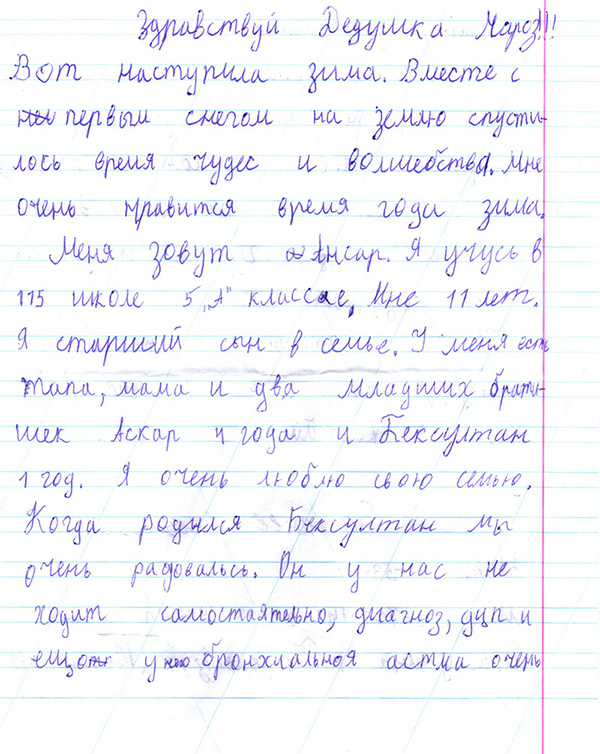 Здравствуй Дедушка Мароз!!!
Вот наступила зима. Вместе с
первым снегом на землю спусти-
лось время чудес и волшебства. Мне
очень нравится время года зима.
Меня зовут Ансар. Я учусь в
115 школе 5 „А" классе, Мне 11 лет.
Я старший сын в семье. У меня есть
папа, мама и два младших брати-
шек Аскар 4 года и Бексултан
1 год. Я очень люблю свою семью.
Когда родился Бексултан мы
очень радовались. Он у нас не
ходит самостаятельно, диагноз, дцп и
ещо у него бронхиальноя астма очень